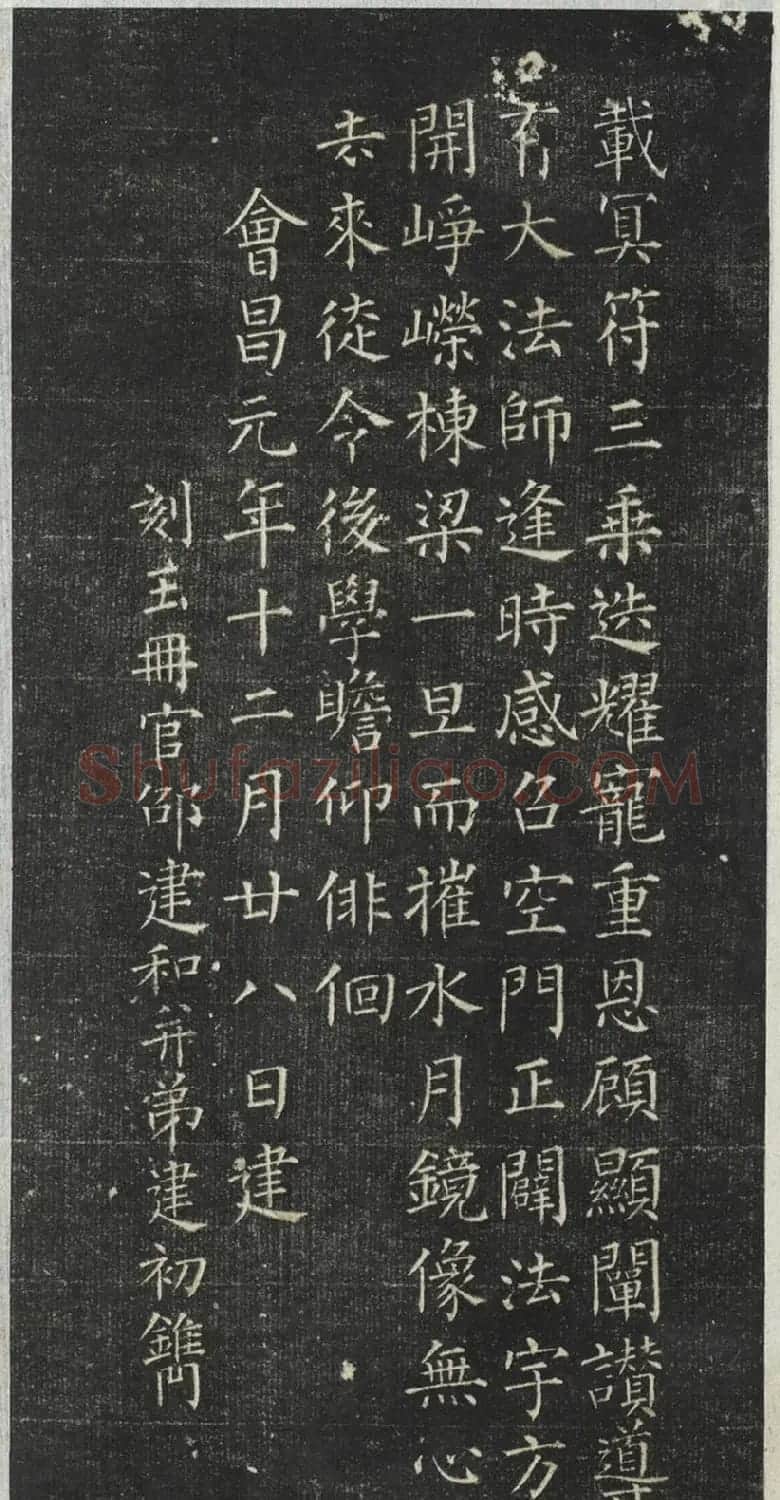 載冥符三乘迭耀寵重恩顧顯闡讃導
有大法師逢時感召空門正闢法宇方
開崢嶸棟梁一旦而摧水月鏡像無心
去來徒令後學瞻仰俳佪
會昌元年十二月廿八日建
刻玉冊官邵建和并弟建初鐫
Shufaziliao.COM